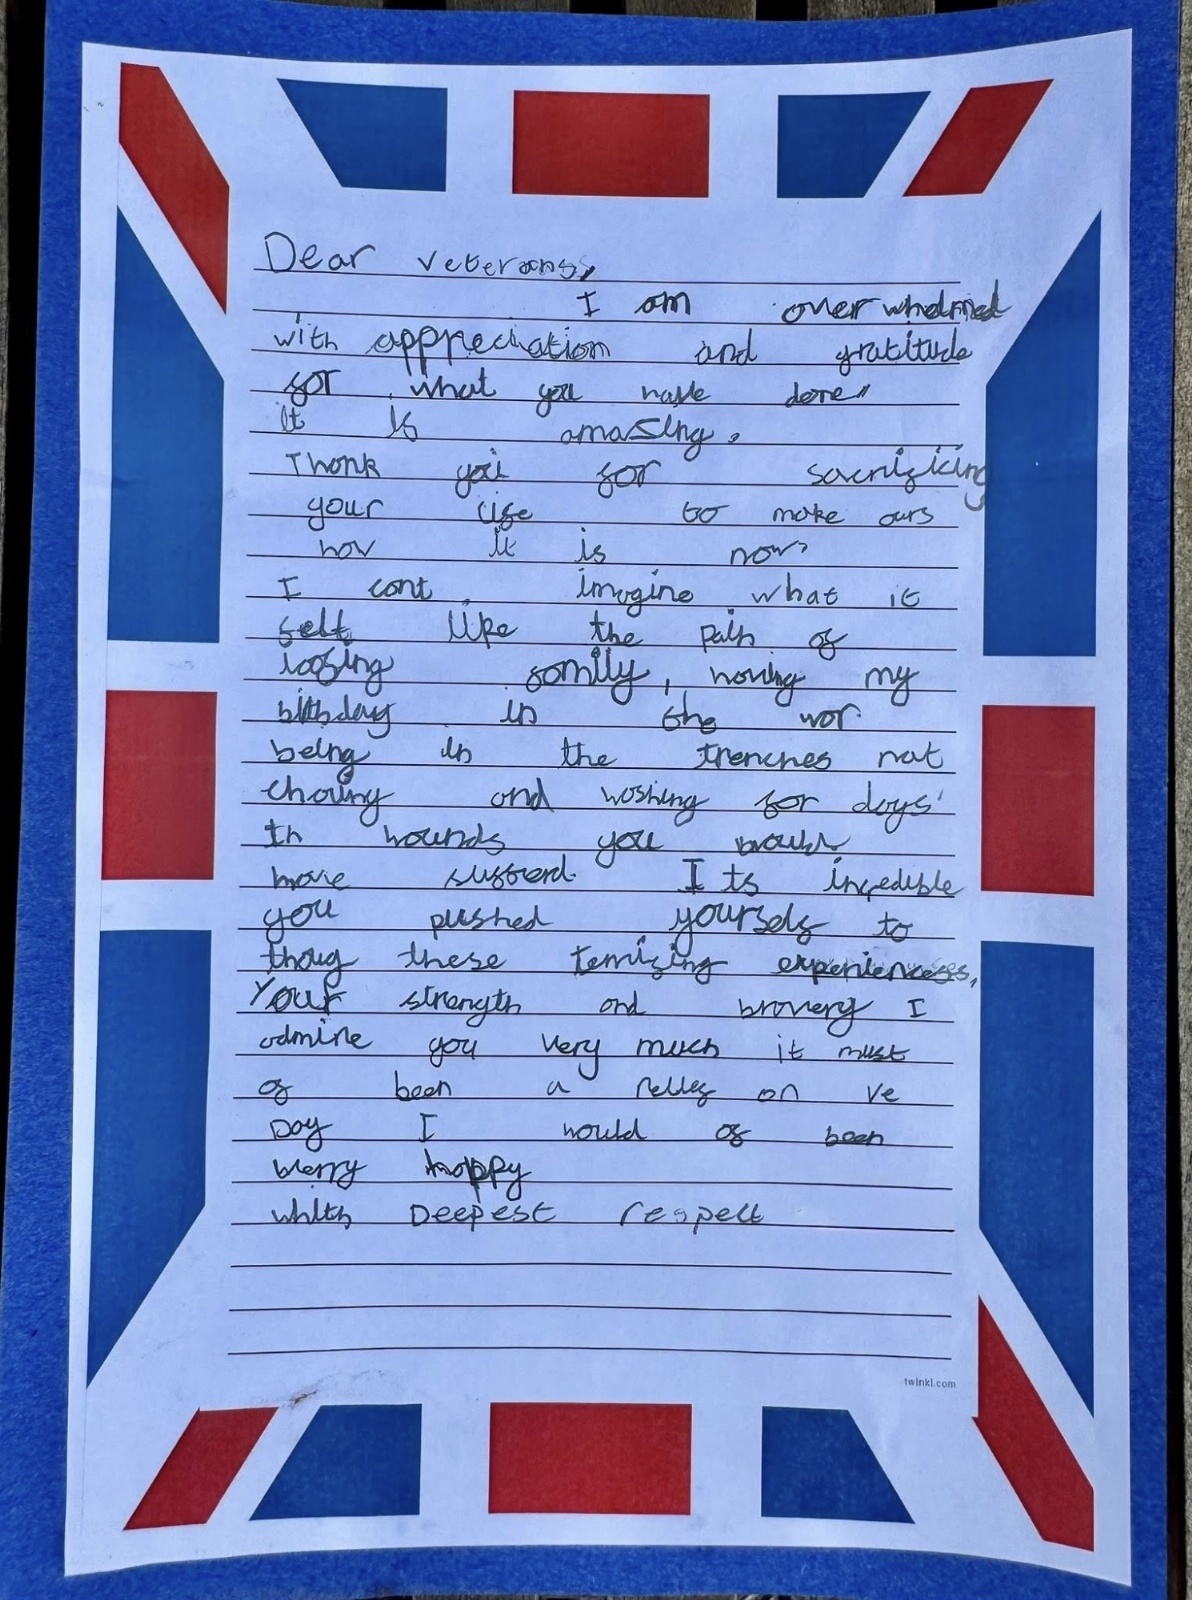 Dear veterans,
I am over whelmed
with appreciation and gratitude
for what you have done,,
it is amazing.
Thank you for sacrificing
your life to make ours
how it is now,
I cant imagine what it
felt like the pain of
loosing family, having my
birthday in the war
being in the trenches not
and washing for days
in wounds you would
have sufferd. Its incredible
you pushed yourself to
thoug these terrifing experiences,
Your strength and bravery I
admire you very much it must
of been a relief on ve
Day I would of been
very happy
whith Deepest respect
twinkl.com